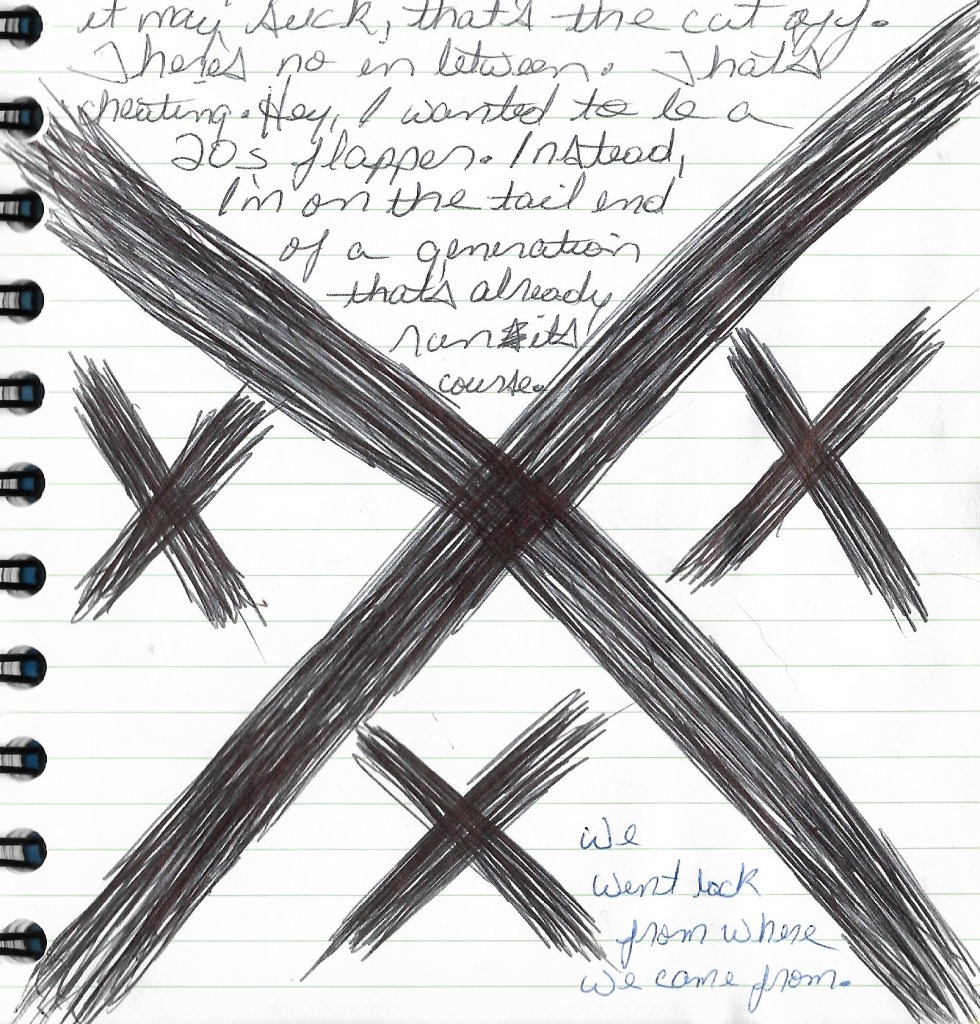 it may suck, that's the cut off.
There's no in between. That's
cheating. Hey, I wanted to be a
20s flapper. Instead,
I'm on the tail end
of a generation
that's already
run its
course.
we
went back
from where
we came from.